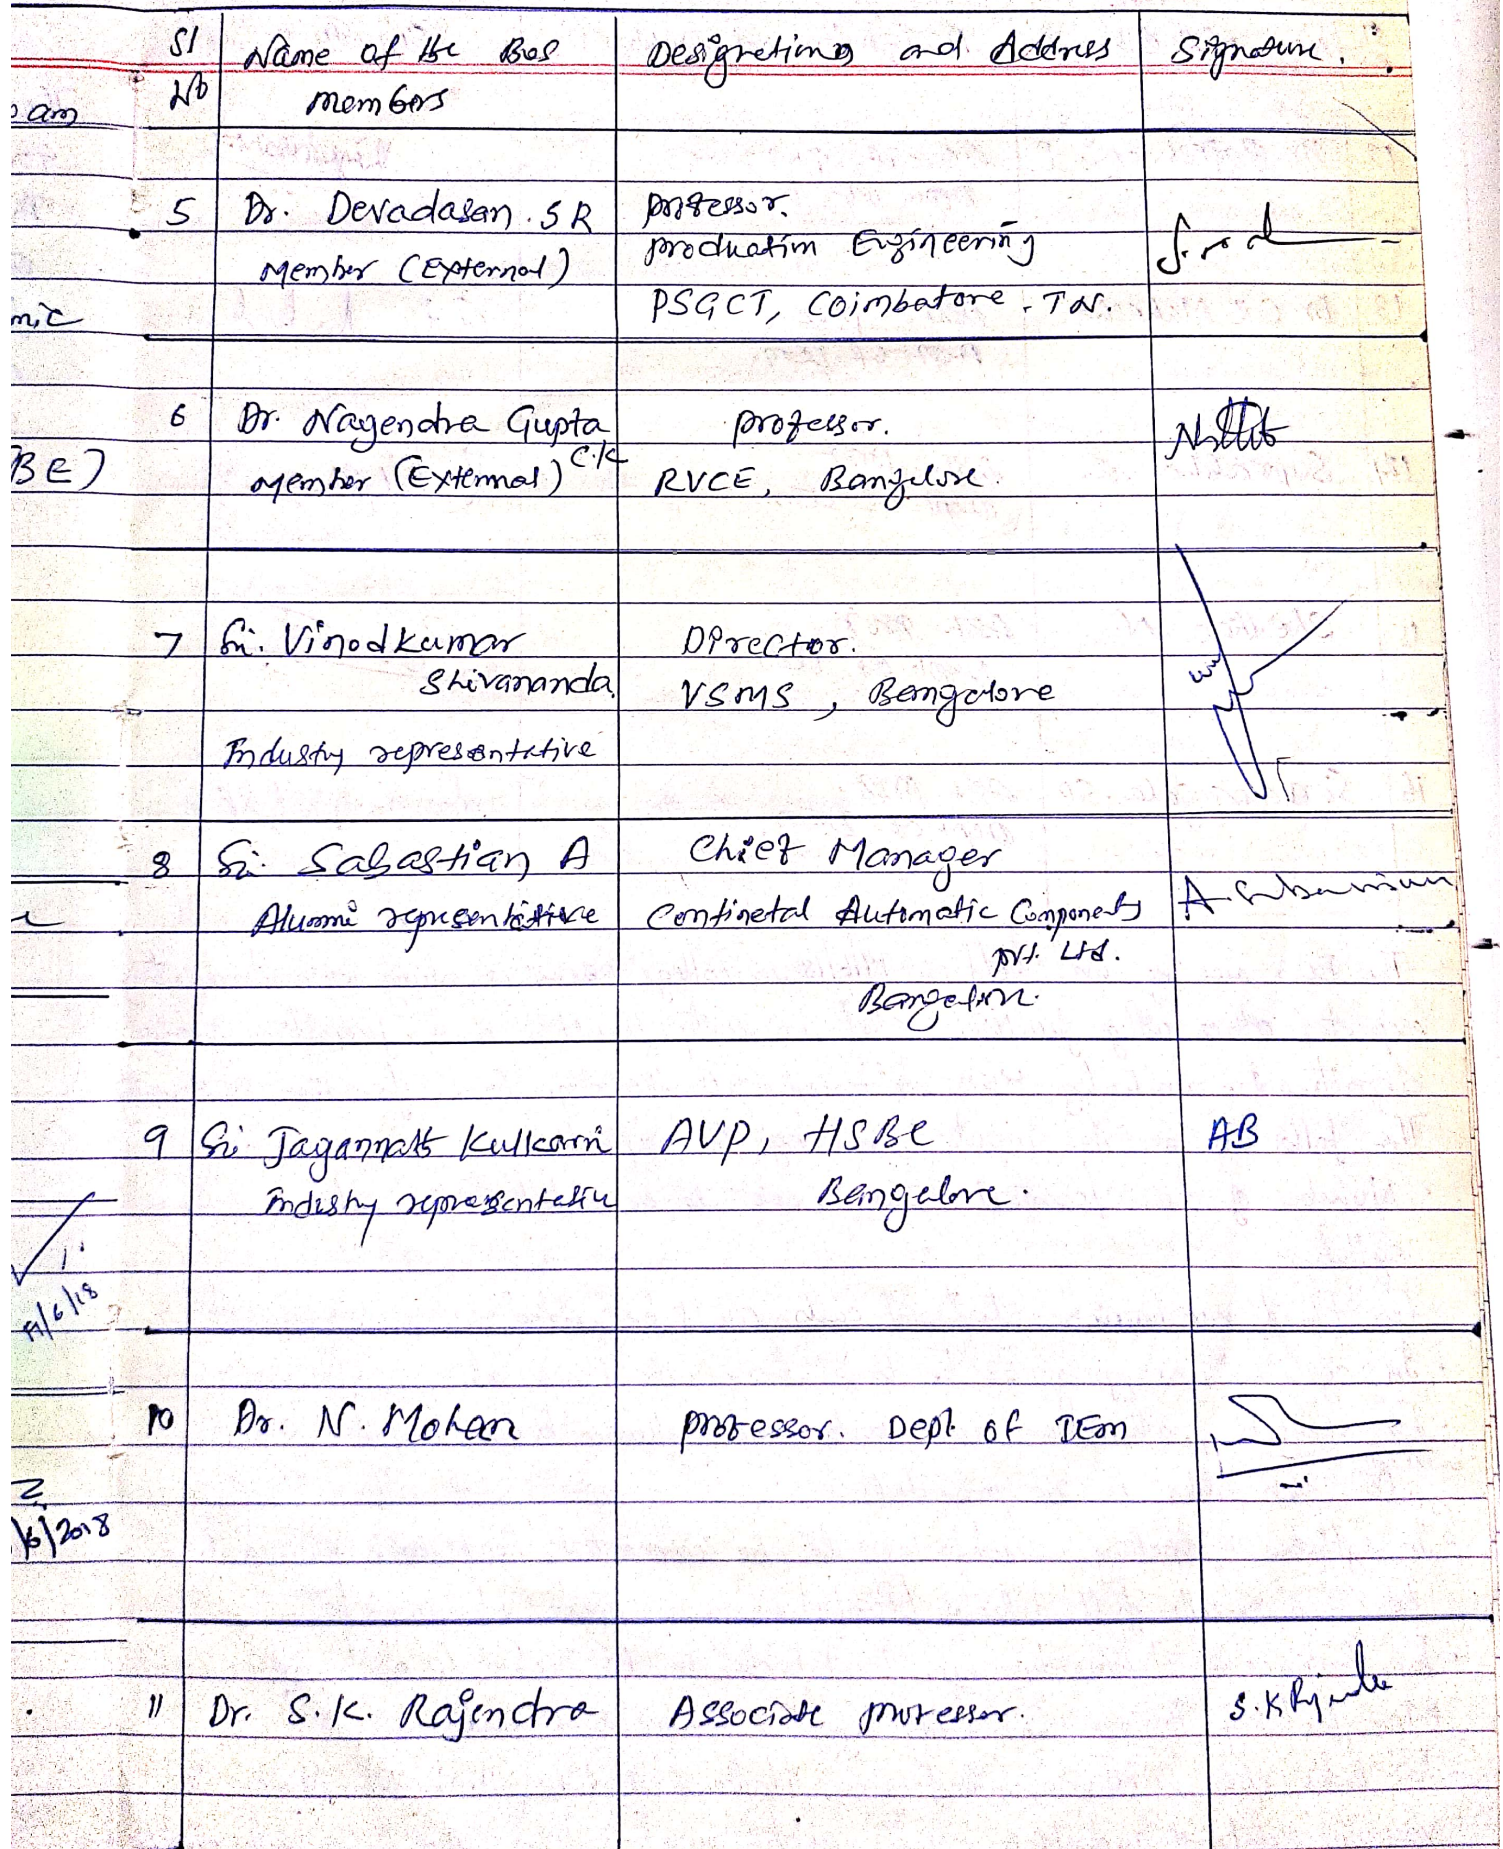 Sl No
Name of the BoS members
Designetions and Address
Signature.
5
Dr. Devadasan. S R
Member (External)
professor.
production Engineering
PSGCT, Coimbatore. TN.
6
Dr. Nagendra Gupta
C.K
Member (External)
professor.
RVCE, Bangelore.
7
Sri. Vinodkumar
Shivananda
Industry representative
Director.
VSMS, Bangalore
8
Sri. Sabastian A
Alumni representitive
Chief Manager
Continetal Automatic Components
pvt. Ltd.
Bangelore.
9
Sri Jagannath Kulkarni
industry representative
AVP, HSBC
Bengalore.
AB
10
Dr. N. Mohan
professor. Dept of IEM
11
Dr. S.K. Rajendra
Associate professor.
am
mic
BE)
/6/18
/6/2018